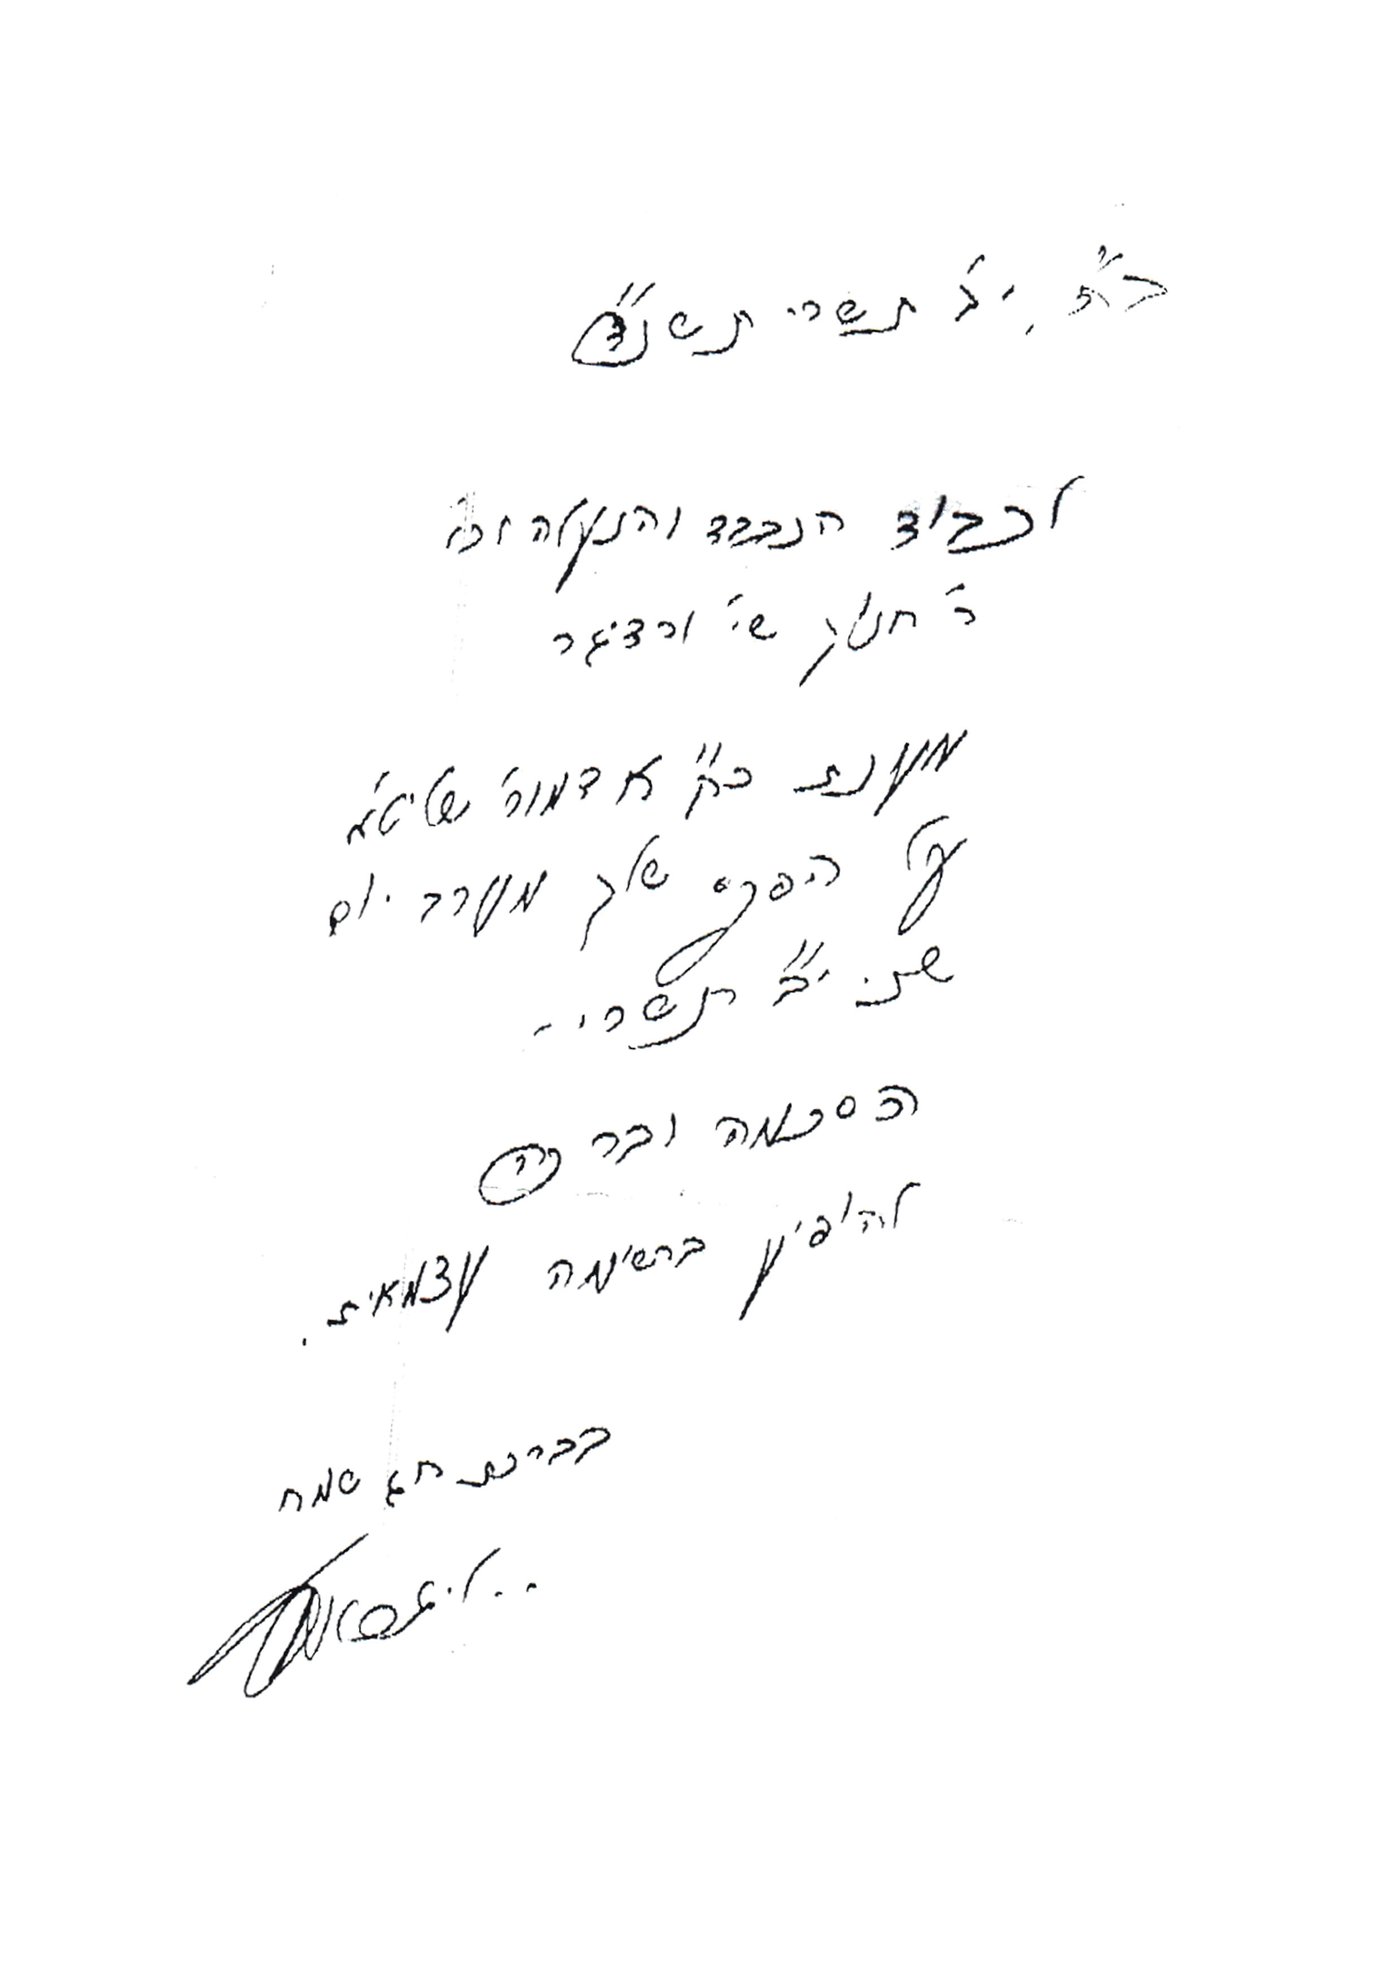 ב"ה, י"ב תשרי תשנ"ד
לכבוד הנכבד והנעלה וכו'
ר' חנוך שי' ורדיגר
מענת כ"ק אדמו"ר שליט"א
על הפקס שלך מערב יום
שני י"ב תשרי -
הסכמה וברכה
להופיע ברשימה עצמאית.
בברכת חג שמח